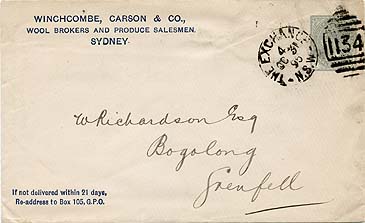 WINCHCOMBE, CARSON & CO.,
WOOL BROKERS AND PRODUCE SALESMEN.
SYDNEY.
THE EXCHANGE
4
OC 31
95
N.S.W
1134
W Richardson Esq
Bogolong
Grenfell
If not delivered within 21 days,
Re-address to Box 105, G.P.O.